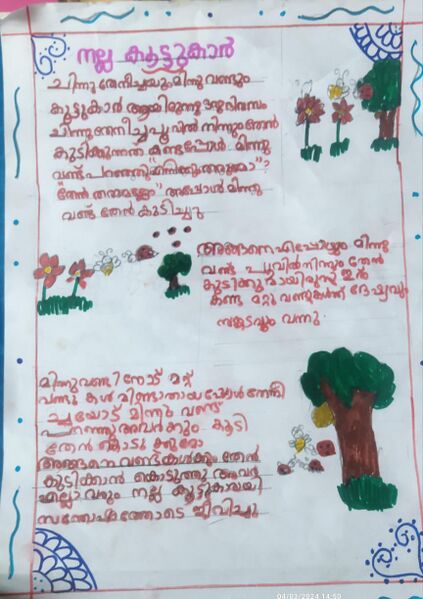 നല്ല കൂട്ടുകാർ
ചിന്നു തേനീച്ചയും മിന്നു വണ്ടും
കൂട്ടുകാർ ആയിരുന്നു ഒരു ദിവസം
ചിന്നു തേനീച്ച പൂവിൽ നിന്നും തേൻ
കുടിക്കുന്നത് കണ്ടപ്പോൾ മിന്നു
വണ്ട് പറഞ്ഞു
തേൻ തരാമല്ലോ" അപ്പോൾ മിന്നു
വണ്ട് തേൻ കുടിച്ചു
അങ്ങനെ എപ്പോഴും മിന്നു
വണ്ട് പൂവിൽ നിന്നും തേൻ
കുടിക്കുമായിരുന്നു ഇത്
കണ്ട മറ്റു വണ്ടുകൾക്ക് ദേഷ്യവും
സങ്കടവും വന്നു.
മിന്നുവണ്ടിനോട് മറ്റ്
വണ്ടുകൾ മിണ്ടാതായപ്പോൾ തേനീ
ച്ചയോട് മിന്നു വണ്ട്
പറഞ്ഞു അവർക്കും കൂടി
തേൻ കൊടുക്കുമോ
അങ്ങനെ വണ്ടുകൾക്കും തേൻ
കുടിക്കാൻ കൊടുത്തു അവർ
എല്ലാവരും നല്ല കൂട്ടുകാരായി
സന്തോഷത്തോടെ ജീവിച്ചു
04/03/2024 14:50